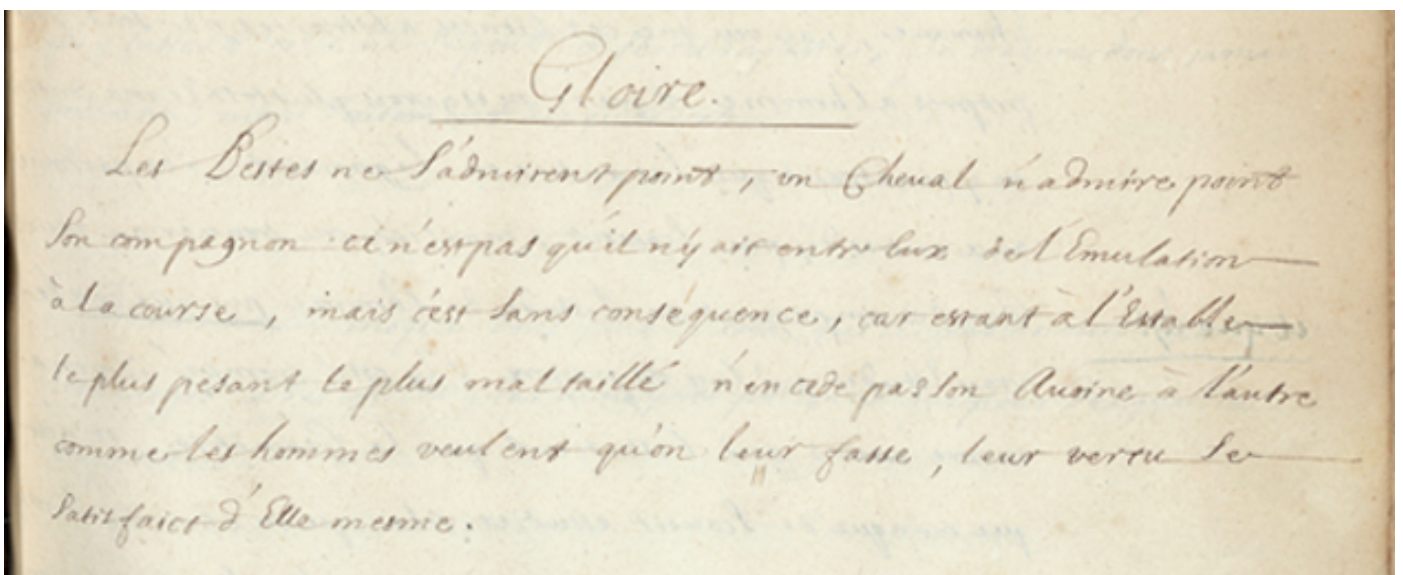 Gloire.
Les Bestes ne S'admirent point, un Cheval n'admire point
Son compagnon ce n'est pas qu'il n'y ait entre Eux de l'Emulation
à la course, mais c'est Sans conséquence, car estant à l'Estable
le plus pesant et le plus mal taillé n'en cede pas Son Avoine à l'autre
comme les hommes veulent qu'on leur fasse, leur vertu Se
Satisfaict d'Elle mesme.